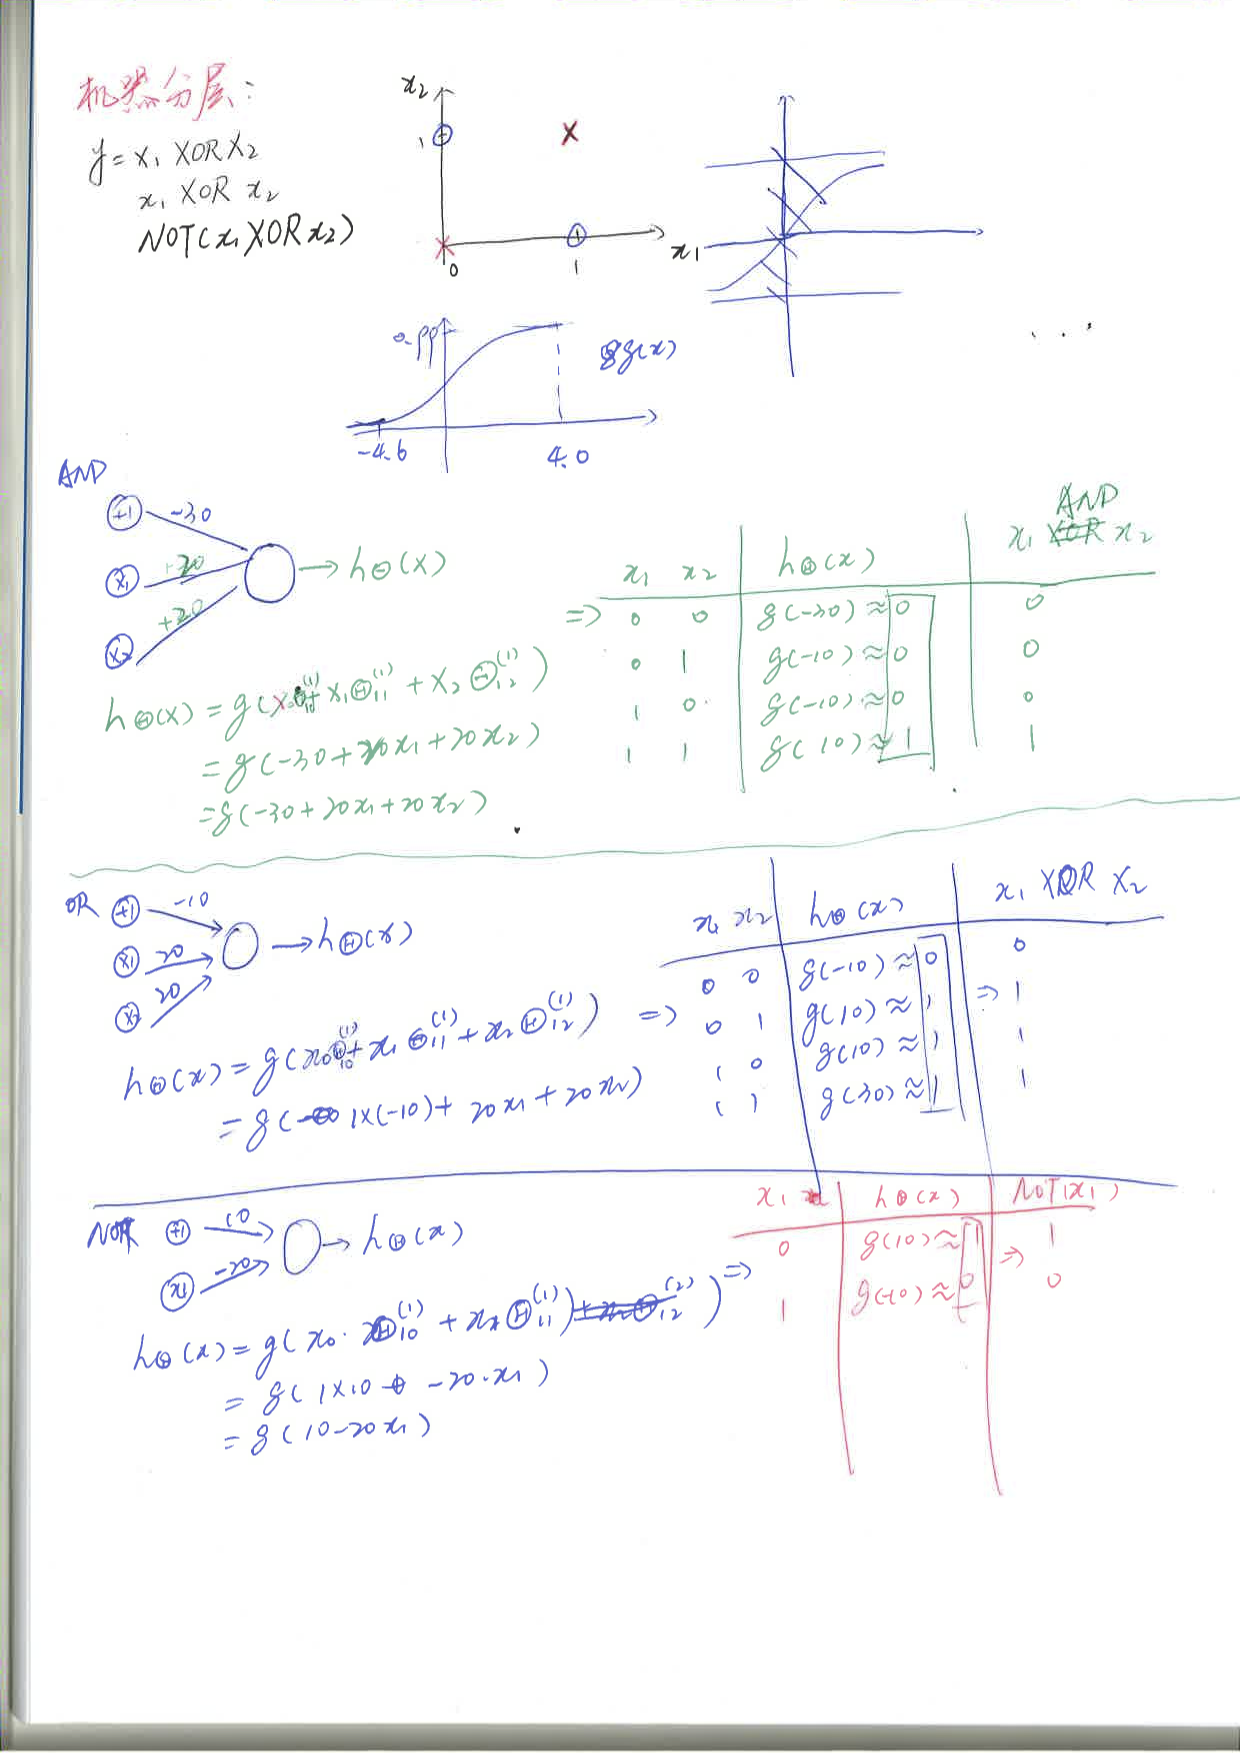 机器分层:
y = x₁ XOR x₂
x₁ XOR x₂
NOT(x₁ XOR x₂)
x₂
1
0
1
x₁
g(x)
-4.6
4.0
AND
+1 -30
x₁ +20
x₂ +20
→ hΘ(x)
hΘ(x) = g(x₀Θ₁₀⁽¹⁾ + x₁Θ₁₁⁽¹⁾ + x₂Θ₁₂⁽¹⁾)
= g(-30 + 20x₁ + 20x₂)
= g(-30 + 20x₁ + 20x₂)
AND
x₁ x₂ hΘ(x) x₁ XOR x₂
=> 0 0 g(-30) ≈ 0 0
0 1 g(-10) ≈ 0 0
1 0 g(-10) ≈ 0 0
1 1 g(10) ≈ 1 1
OR
+1 -10
x₁ 20
x₂ 20
→ hΘ(x)
hΘ(x) = g(x₀Θ₁₀⁽¹⁾ + x₁Θ₁₁⁽¹⁾ + x₂Θ₁₂⁽¹⁾) =>
= g(1×(-10) + 20x₁ + 20x₂)
x₁ x₂ hΘ(x) x₁ XOR x₂
0 0 g(-10) ≈ 0 0
0 1 g(10) ≈ 1 => 1
1 0 g(10) ≈ 1 1
1 1 g(30) ≈ 1 1
NOT
+1 10
x₁ -20
→ hΘ(x)
hΘ(x) = g(x₀·Θ₁₀⁽¹⁾ + x₁Θ₁₁⁽¹⁾) =>
= g(1×10 + -20·x₁)
= g(10-20x₁)
x₁ hΘ(x) NOT(x₁)
0 g(10) ≈ 1 => 1
1 g(-10) ≈ 0 0